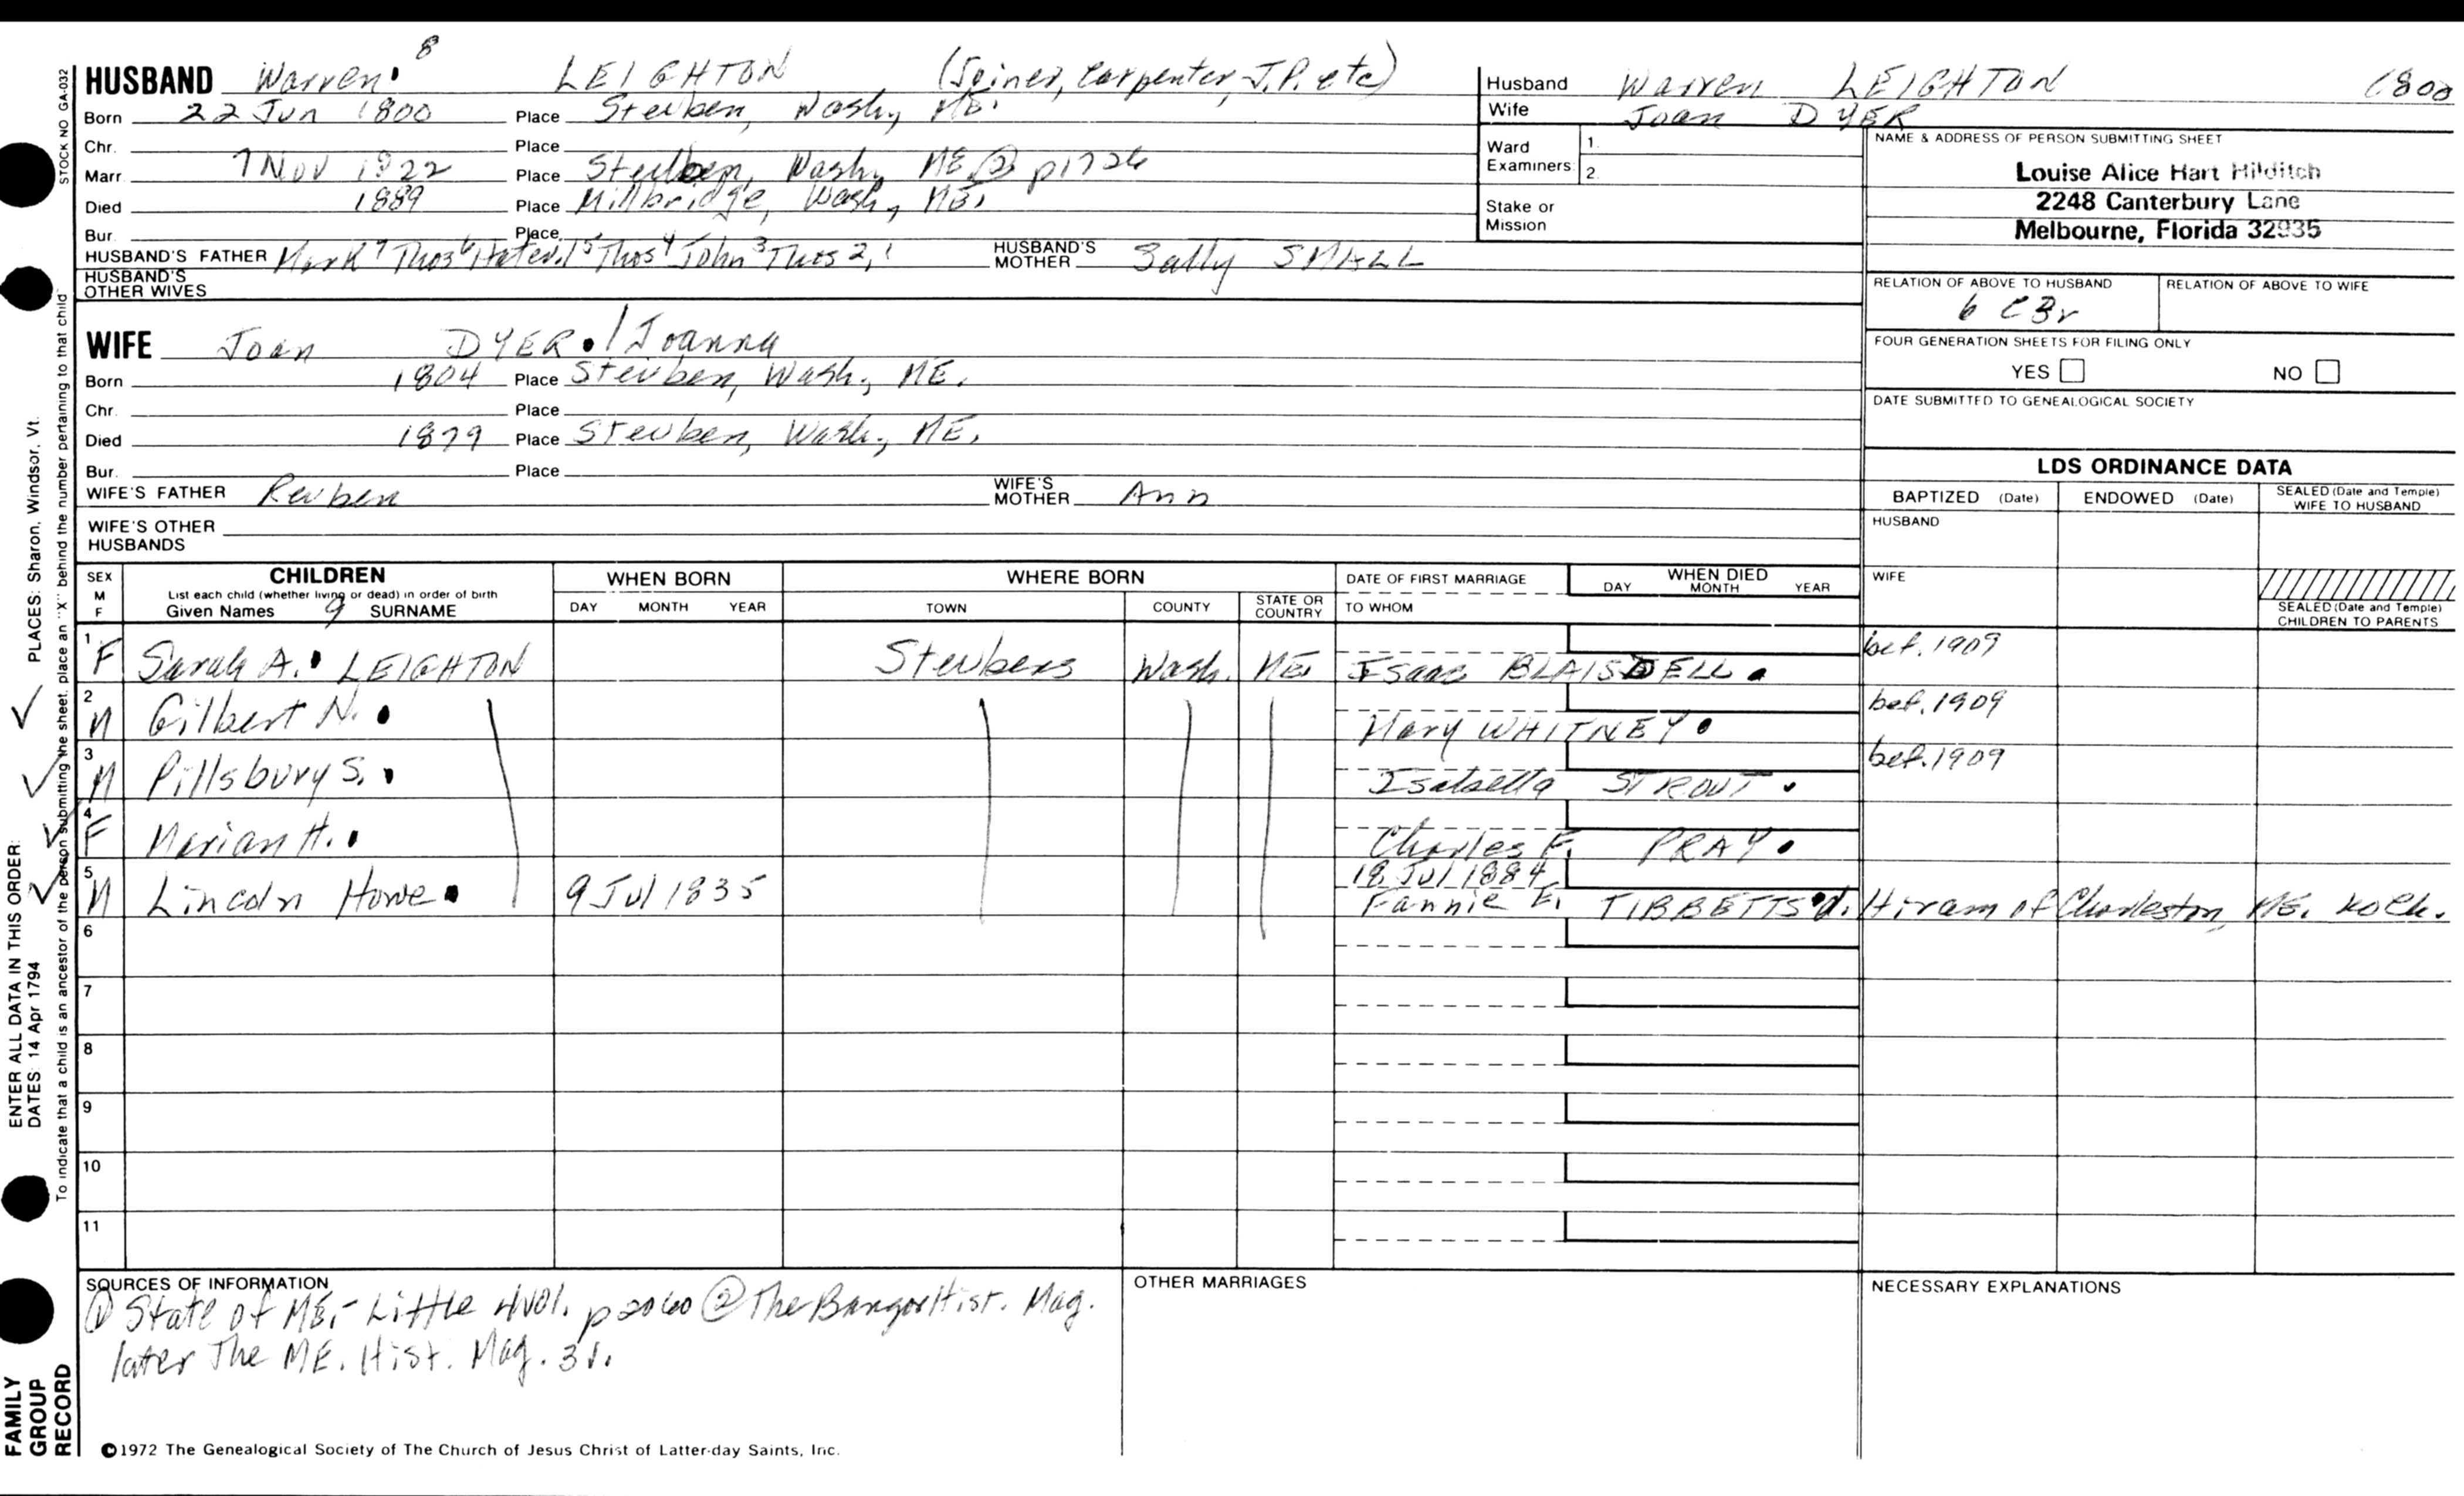 HUSBAND Warren 8 LEIGHTON (Joiner, Carpenter, J.P. etc)
Born 22 Jun 1800 Place Steuben, Wash, ME.
Chr. Place
Marr 7 Nov 1822 Place Steuben, Wash, ME ② p1726
Died 1889 Place Millbridge, Wash, ME.
Bur. Place
HUSBAND'S FATHER Mark 7 Thos 6 5 Thos 4 John 3 Thos 2,1 HUSBAND'S MOTHER Sally SMALL
HUSBAND'S OTHER WIVES
WIFE Joan DYER. / Joanna
Born 1804 Place Steuben, Wash, ME.
Chr. Place
Died 1879 Place Steuben, Wash., ME.
Bur. Place
WIFE'S FATHER Reuben WIFE'S MOTHER Ann
WIFE'S OTHER HUSBANDS
Husband Warren LEIGHTON 1800
Wife Joan DYER
Ward Examiners: 1. 2.
Stake or Mission
NAME & ADDRESS OF PERSON SUBMITTING SHEET
Louise Alice Hart Hilditch
2248 Canterbury Lane
Melbourne, Florida 32935
RELATION OF ABOVE TO HUSBAND RELATION OF ABOVE TO WIFE
6 C 3r
FOUR GENERATION SHEETS FOR FILING ONLY
YES NO
DATE SUBMITTED TO GENEALOGICAL SOCIETY
LDS ORDINANCE DATA
BAPTIZED (Date) ENDOWED (Date) SEALED (Date and Temple) WIFE TO HUSBAND
HUSBAND
WIFE
SEALED (Date and Temple) CHILDREN TO PARENTS
SEX M F CHILDREN WHEN BORN WHERE BORN DATE OF FIRST MARRIAGE WHEN DIED
List each child (whether living or dead) in order of birth
Given Names 9 SURNAME DAY MONTH YEAR TOWN COUNTY STATE OR COUNTRY TO WHOM DAY MONTH YEAR
1 F Sarah A. LEIGHTON Steuben Wash. ME. Isaac BLAISDELL. bef. 1909
2 M Gilbert N. Mary WHITNEY. bef. 1909
3 M Pillsbury S. Isabella STROUT. bef. 1909
4 F Marian H. Charles F. PRAY.
5 M Lincoln Howe. 9 Jul 1835 18 Jul 1884
Fannie E. TIBBETTS d. Hiram of Charleston, ME.
6
7
8
9
10
11
SOURCES OF INFORMATION
① State of ME. - Little 4Vol. p2060 ② The Bangor Hist. Mag.
later The ME. Hist. Mag. 3V.
OTHER MARRIAGES
NECESSARY EXPLANATIONS
©1972 The Genealogical Society of The Church of Jesus Christ of Latter-day Saints, Inc.
STOCK NO GA-032
To indicate that a child is an ancestor of the person submitting the sheet, place an "X" behind the number pertaining to that child
ENTER ALL DATA IN THIS ORDER:
DATES: 14 Apr 1794 PLACES: Sharon, Windsor, Vt.
FAMILY GROUP RECORD